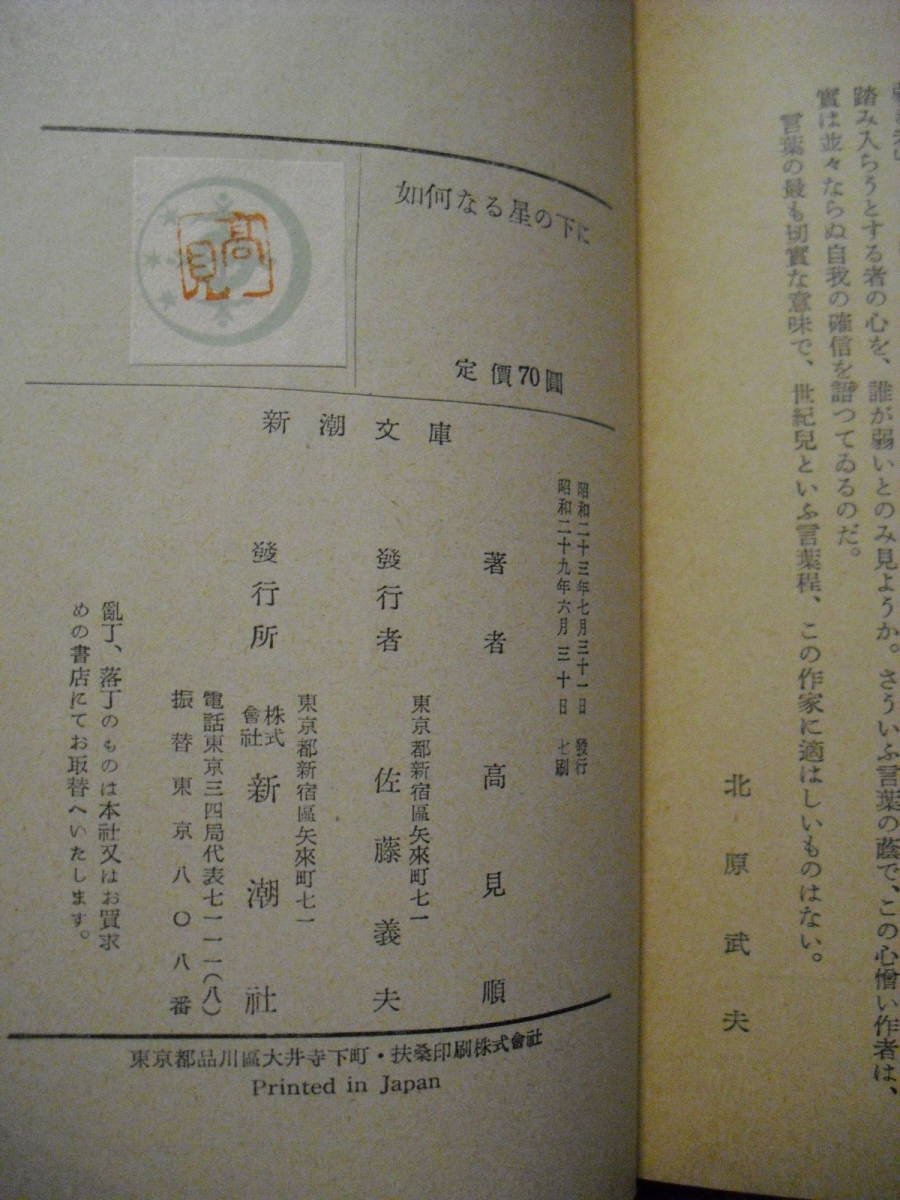 踏み入らうとする者の心を、誰が弱いとのみ見ようか。さういふ言葉の蔭で、この心憎い作者は、
實は並々ならぬ自我の確信を語つてゐるのだ。
言葉の最も切實な意味で、世紀兒といふ言葉程、この作家に適はしいものはない。
北原武夫
如何なる星の下に
定價70圓
高見
新潮文庫
昭和二十三年七月三十一日 發行
昭和二十九年六月三十日 七刷
著者 高見順
東京都新宿區矢來町七一
發行者 佐藤義夫
東京都新宿區矢來町七一
發行所 株式會社 新潮社
電話東京三四局代表七一一一(八)
振替東京八〇八番
亂丁、落丁のものは本社又はお買求
めの書店にてお取替へいたします。
東京都品川區大井寺下町・扶桑印刷株式會社
Printed in Japan